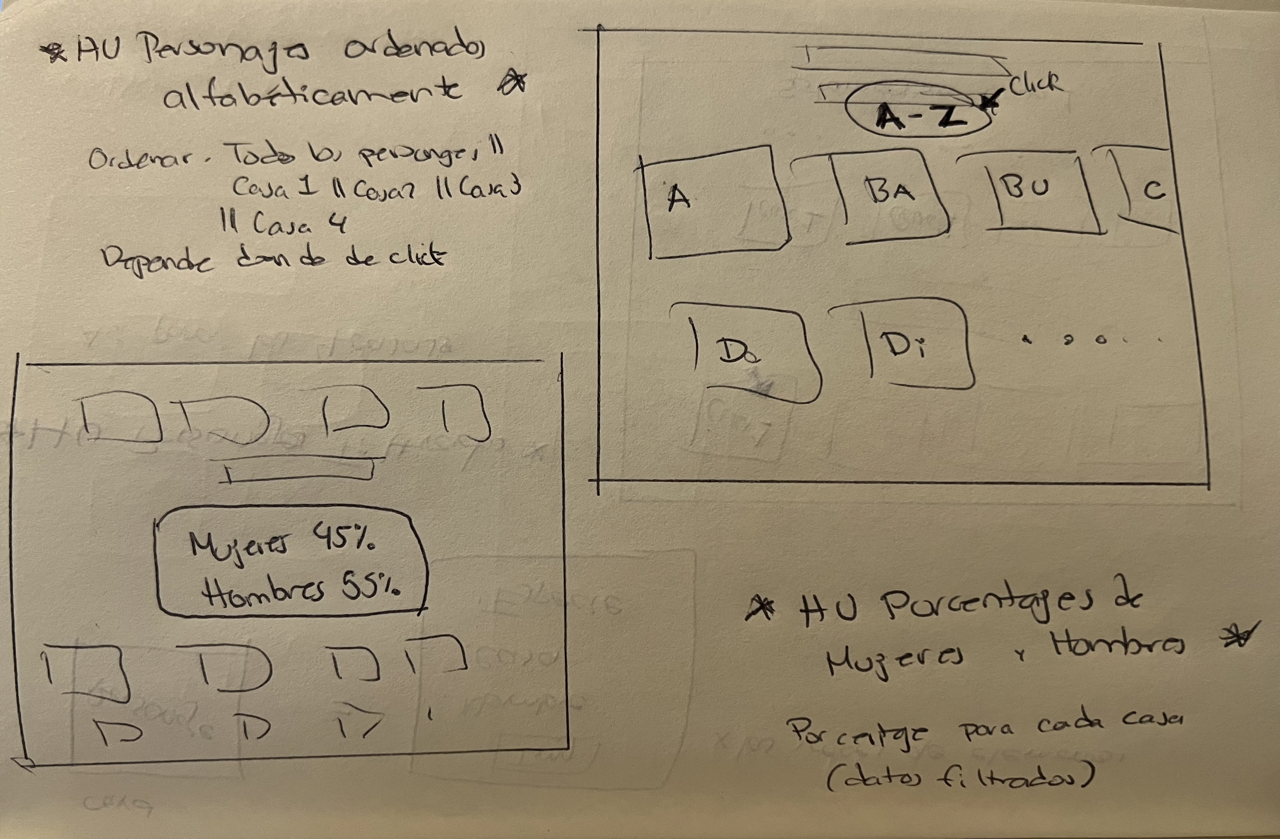 * HU Personajes ordenados
alfabéticamente *
Ordenar. Todos los personajes ||
Casa 1 || Casa 2 || Casa 3
|| Casa 4
Depende donde de click
Click
A - Z
A
BA
BU
C
Da
Di
Mujeres 45%
Hombres 55%
* HU Porcentages de
Mujeres y Hombres *
Porcentge para cada casa
(datos filtrados)